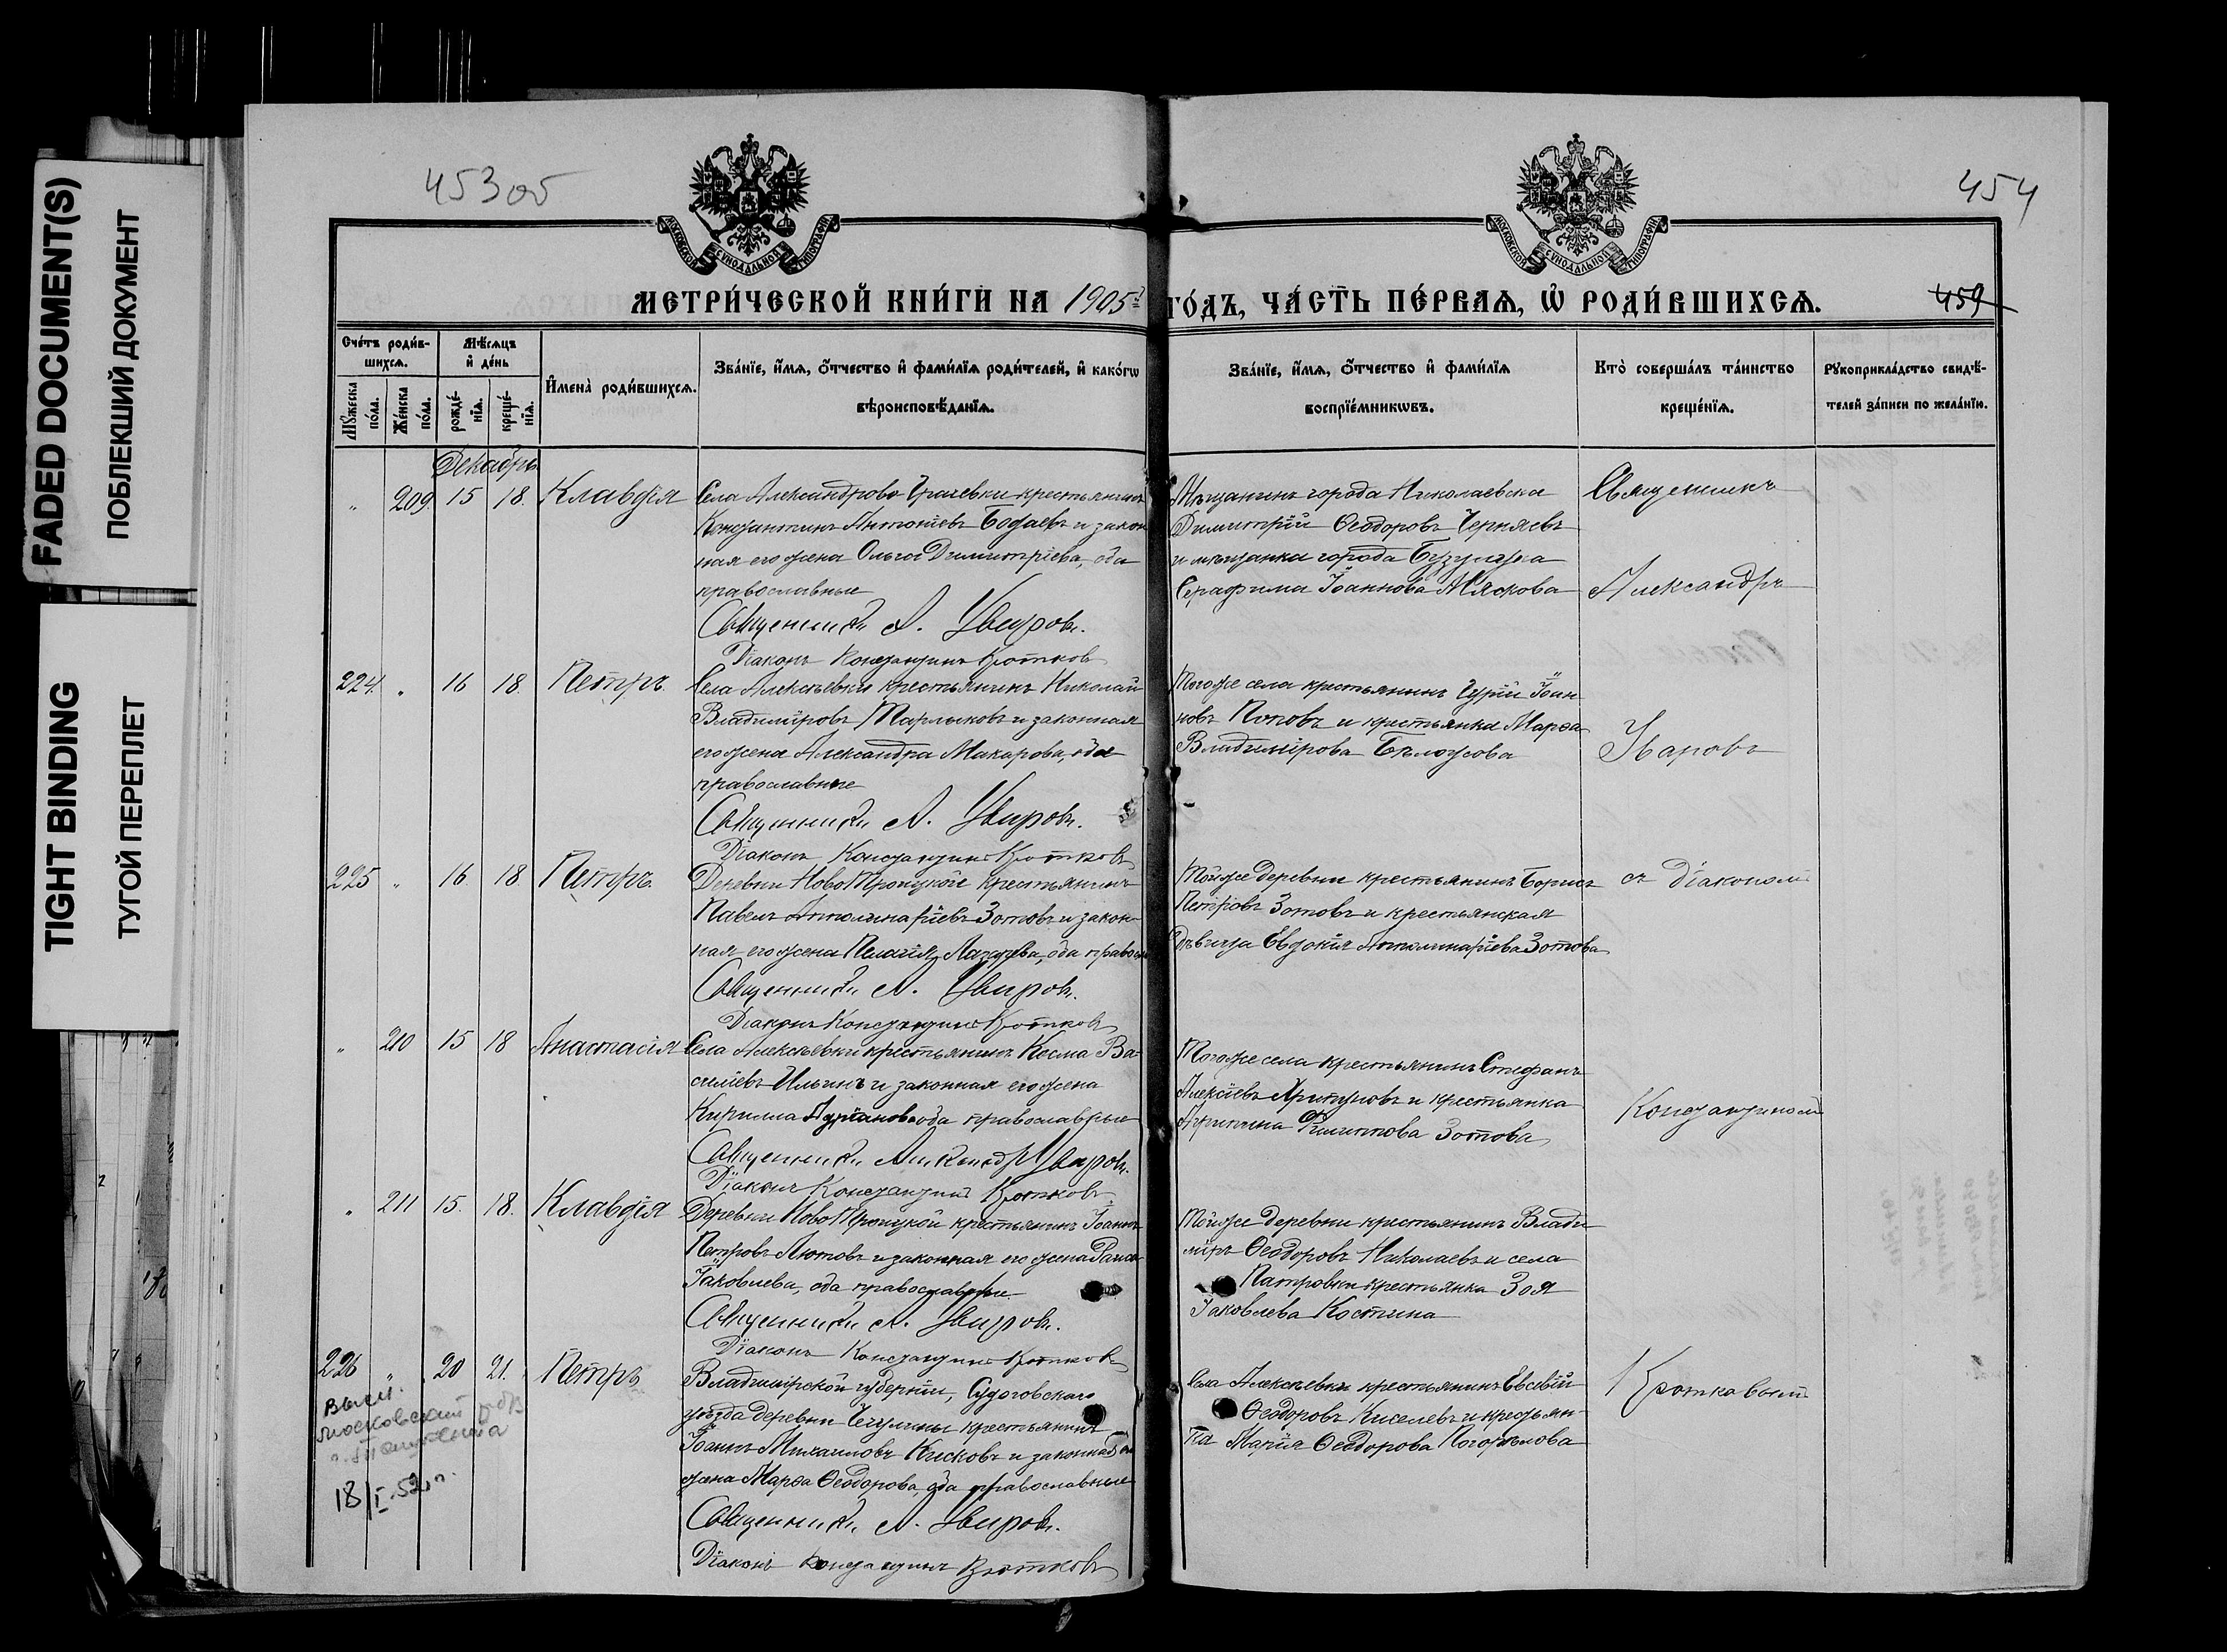 FADED DOCUMENT(S)
ПОБЛЕКШИЙ ДОКУМЕНТ
TIGHT BINDING
ТУГОЙ ПЕРЕПЛЕТ
453об
454
459
МОСКОВСКОЙ СУНОДАЛЬНОЙ ТИПОГРАФІИ
МОСКОВСКОЙ СУНОДАЛЬНОЙ ТИПОГРАФІИ
МЕТРИ́ЧЕСКОЙ КНИ́ГИ НА 1905й ГО́ДЪ, ЧА́СТЬ ПЕ́РВАЯ, Ѡ РОДИ́ВШИХСЯ.
Сче́тъ роди́в-
шихся.
Мѣсяцъ
и де́нь
Мꙋжеска по́ла.
Же́нска по́ла.
рожде́-
нїя.
креще́-
нїя.
И҆мена̀ роди́вшихся.
Зва́нїе, и҆́мя, ѻ҆́тчество и҆ фами́лїя роди́телей, и҆ како́гѡ
вѣроисповѣ́данїя.
Зва́нїе, и҆́мя, ѻ҆́тчество и҆ фами́лїя
воспрїе́мникѡвъ.
Кто̀ соверша́лъ та́инство
креще́нїя.
Рꙋкоприкла́дство свидѣ́-
телей за́писи по жела́нїю.
Декабрь
" 209. 15 18. Клавдія
Села Александрово Грачевки крестьянинъ
Константинъ Антоніевъ Бодаевъ и закон
ная его жена Ольга Димитріева, оба
православные
Священникъ А. Уваровъ.
Діаконъ Константинъ Кротковъ
Мѣщанинъ города Николаевска
Димитрій Ѳеодоровъ Черняевъ
и мѣщанка города Бузулука
Серафима Іоаннова Мяскова
Священникъ
Александръ
224. " 16 18. Петръ
Села Алексѣевки крестьянинъ Николай
Владиміровъ Марлыковъ и законная
его жена Александра Макарова, оба
православные
Священникъ А. Уваровъ.
Діаконъ Константинъ Кротковъ
Того же села крестьянинъ Гурій Іоан
новъ Поповъ и крестьянка Марѳа
Владимірова Бѣлоусова
Уваровъ
225 " 16 18 Петръ
Деревни Ново Троицкой крестьянинъ
Павелъ Апполинаріевъ Зотовъ и закон-
ная его жена Пелагія Лазарева, оба правосл
Священникъ А. Уваровъ.
Діаконъ Константинъ Кротковъ
Той же деревни крестьянинъ Борисъ
Петровъ Зотовъ и крестьянская
дѣвица Евдокія Апполинаріева Зотова
съ Діакономъ
" 210 15 18 Анастасія
Села Алексѣевки крестьянинъ Косма Ва-
силіевъ Ильинъ и законная его жена
оба православные
Священникъ Александръ Уваровъ.
Діаконъ Константинъ Кротковъ
Того же села крестьянинъ Стефанъ
Алексіевъ Хрипуновъ и крестьянка
Агрипина Филиппова Зотова
Константиномъ
" 211 15. 18. Клавдія
Деревни Ново Троицкой крестьянинъ Іоаннъ
Петровъ Лютовъ и законная его жена Раиса
Іаковлева, оба православные
Священникъ А. Уваровъ.
Діаконъ Константинъ Кротковъ
Той же деревни крестьянинъ Влади
міръ Ѳеодоровъ Николаевъ и села
Патровки крестьянка Зоя
Іаковлева Костина
226 " 20 21. Петръ
Владимірской губерніи, Судогодскаго
уѣзда деревни крестьянинъ
Іоаннъ Михаиловъ Кисковъ и законная его
жена Марѳа Ѳеодорова, оба православные
Священникъ А. Уваровъ.
Діаконъ Константинъ Кротковъ
Села Алексѣевки крестьянинъ Евсевій
Ѳеодоровъ Киселевъ и крестьян-
ка Марія Ѳеодорова Погорѣлова
Кротковымъ
высл.
московский
18/I.52 г.